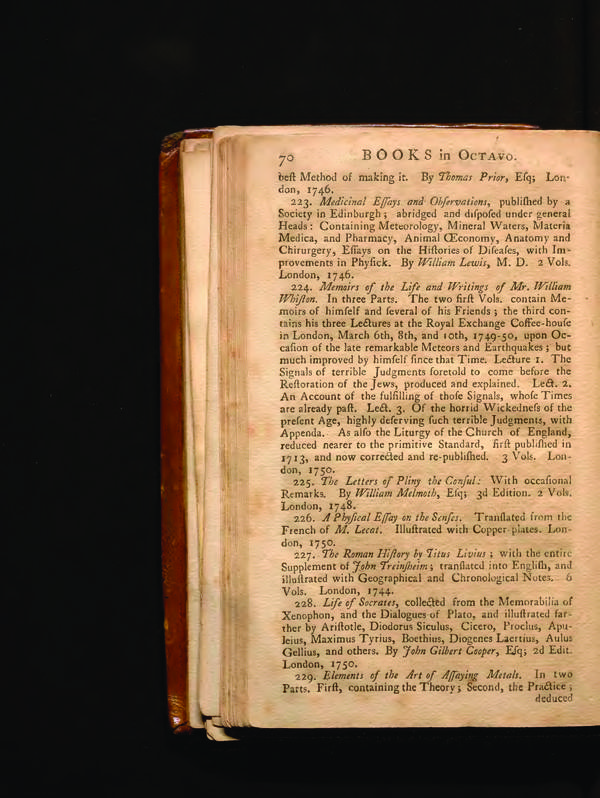 70 BOOKS in OCTAVO.
beſt Method of making it. By Thomas Prior, Eſq; Lon-
don, 1746.
223. Medicinal Eſſays and Obſervations, publiſhed by a
Society in Edinburgh; abridged and diſpoſed under general
Heads: Containing Meteorology, Mineral Waters, Materia
Medica, and Pharmacy, Animal Œconomy, Anatomy and
Chirurgery, Eſſays on the Hiſtories of Diſeaſes, with Im-
provements in Phyſick. By William Lewis, M. D. 2 Vols.
London, 1746.
224. Memoirs of the Life and Writings of Mr. William
Whiſton. In three Parts. The two firſt Vols. contain Me-
moirs of himſelf and ſeveral of his Friends; the third con-
tains his three Lectures at the Royal Exchange Coffee-houſe
in London, March 6th, 8th, and 10th, 1749-50, upon Oc-
caſion of the late remarkable Meteors and Earthquakes; but
much improved by himſelf ſince that Time. Lecture 1. The
Signals of terrible Judgments foretold to come before the
Reſtoration of the Jews, produced and explained. Lect. 2.
An Account of the fulfilling of thoſe Signals, whoſe Times
are already paſt. Lect. 3. Of the horrid Wickedneſs of the
preſent Age, highly deſerving ſuch terrible Judgments, with
Appenda. As alſo the Liturgy of the Church of England,
reduced nearer to the primitive Standard, firſt publiſhed in
1713, and now corrected and re-publiſhed. 3 Vols. Lon-
don, 1750.
225. The Letters of Pliny the Conſul: With occaſional
Remarks. By William Melmoth, Eſq; 3d Edition. 2 Vols.
London, 1748.
226. A Phyſical Eſſay on the Senſes. Tranſlated from the
French of M. Lecat. Illuſtrated with Copper-plates. Lon-
don, 1750.
227. The Roman Hiſtory by Titus Livius; with the entire
Supplement of John Freinſheim; tranſlated into Engliſh, and
illuſtrated with Geographical and Chronological Notes. 6
Vols. London, 1744.
228. Life of Socrates, collected from the Memorabilia of
Xenophon, and the Dialogues of Plato, and illuſtrated far-
ther by Ariſtotle, Diodorus Siculus, Cicero, Proclus, Apu-
leius, Maximus Tyrius, Boethius, Diogenes Laertius, Aulus
Gellius, and others. By John Gilbert Cooper, Eſq; 2d Edit.
London, 1750.
229. Elements of the Art of Aſſaying Metals. In two
Parts. Firſt, containing the Theory; Second, the Practice;
deduced